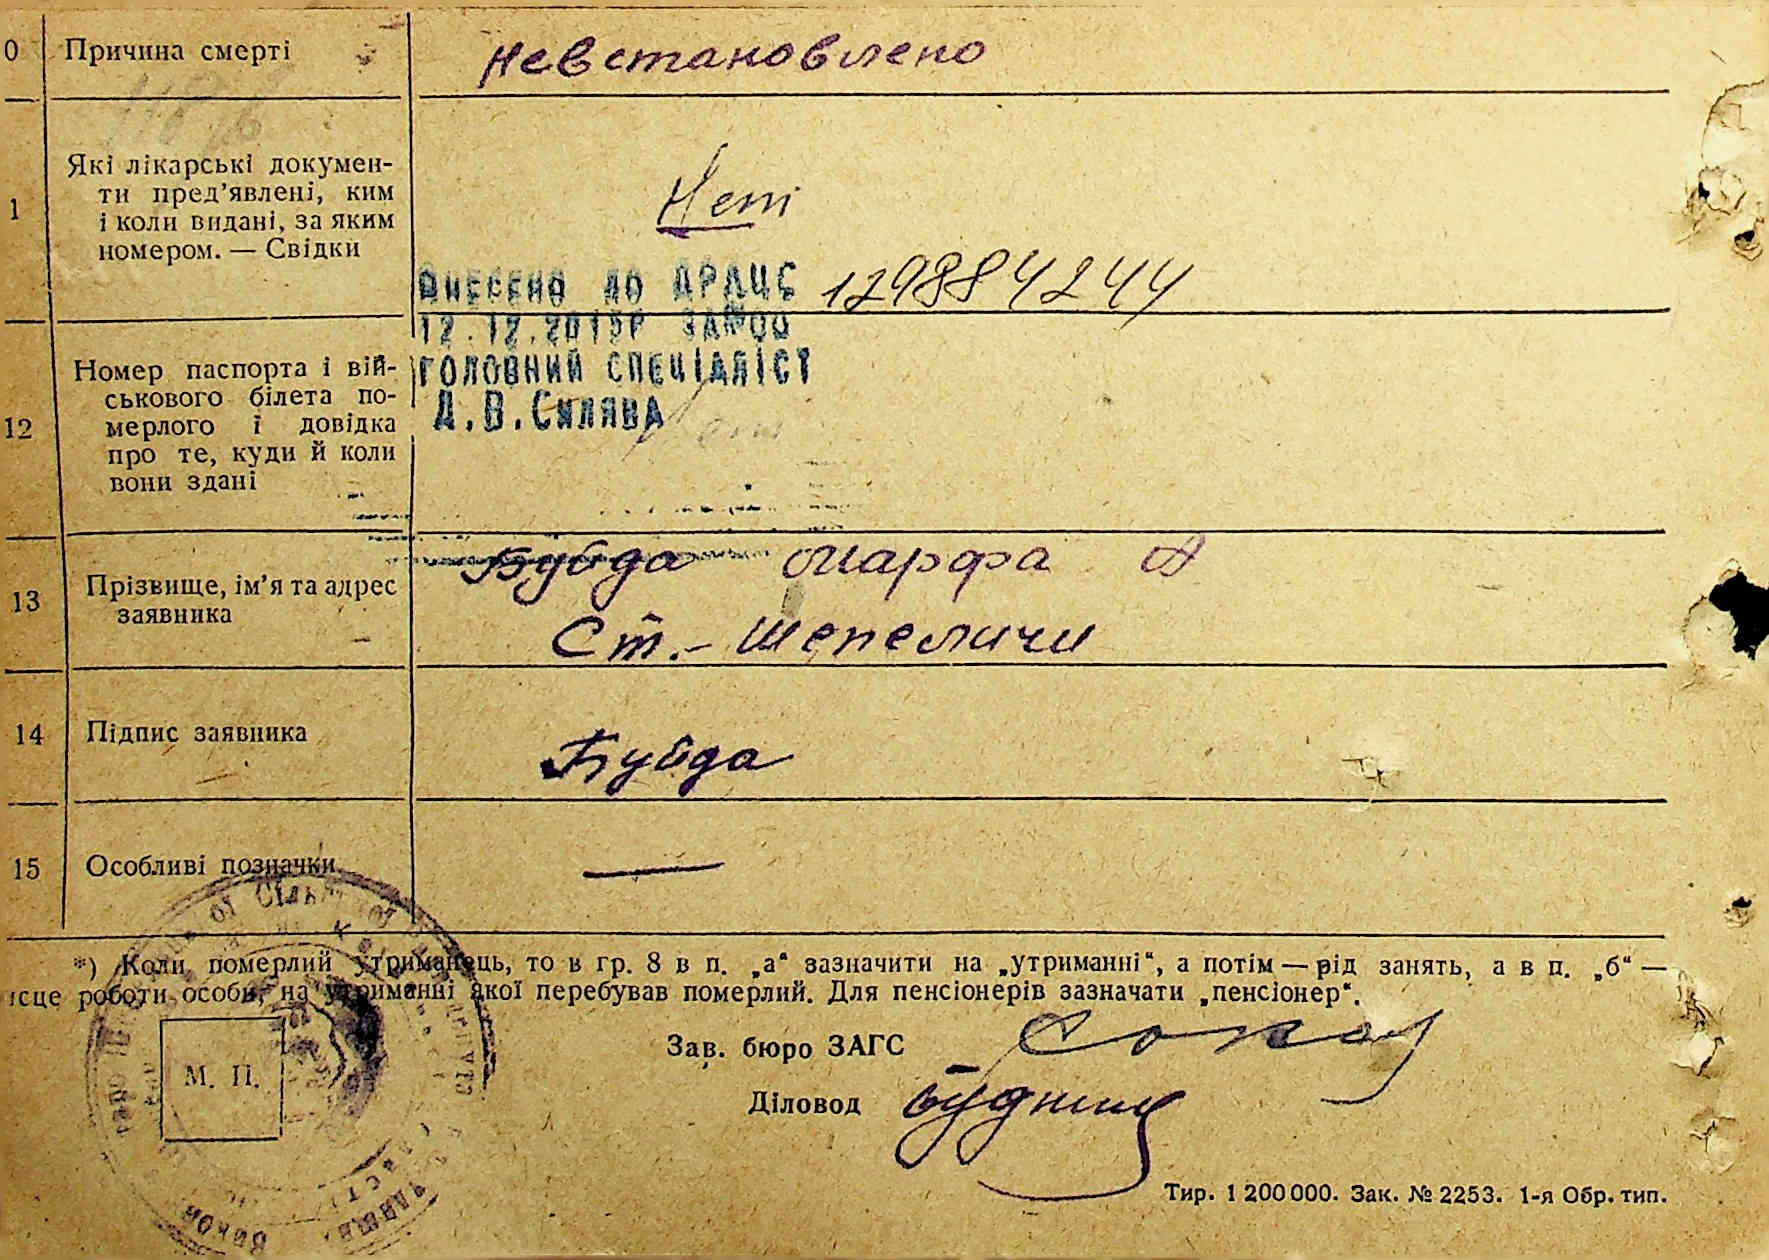 0 Причина смерті Невстановлено
1 Які лікарські докумен-
ти пред’явлені, ким
і коли видані, за яким
номером. — Свідки
Нет
ВНЕСЕНО ДО ДРАЦС 129884244
12.12.2015Р ЗА№00
ГОЛОВНИЙ СПЕЦІАЛІСТ
Д.В.Силява
12 Номер паспорта і вій-
ськового білета по-
мерлого і довідка
про те, куди й коли
вони здані
Нет
13 Прізвище, ім’я та адрес
заявника
Буйда Марфа А
Ст.- Шепеличи
14 Підпис заявника Буйда
15 Особливі позначки —
*) Коли померлий утриманець, то в гр. 8 в п. „а“ зазначити на „утриманні“, а потім — рід занять, а в п. „б“ —
ісце роботи особи, на утриманні якої перебував померлий. Для пенсіонерів зазначати „пенсіонер“.
Зав. бюро ЗАГС
М. П.
Діловод
Тир. 1 200 000. Зак. № 2253. 1-я Обр. тип.